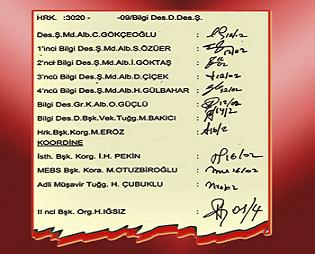 HRK. :3020 - -09/Bilgi Des.D.Des.Ş.
Des.Ş.Md.Alb.C.GÖKÇEOĞLU : 12/02
1'inci Bilgi Des.Ş.Md.Alb.S.SÖZÜER : 12/02
2'nci Bilgi Des.Ş.Md.Alb.İ.GÖKTAŞ :
3'ncü Bilgi Des.Ş.Md.Alb.D.ÇİÇEK : 12/02
4'ncü Bilgi Des.Ş.Md.Alb.H.GÜLBAHAR : 12/02
Bilgi Des.Gr.K.Alb.O.GÜÇLÜ :
Bilgi Des.D.Bşk.Vek.Tuğg.M.BAKICI :
Hrk.Bşk.Korg.M.ERÖZ :
KOORDİNE
İsth. Bşk. Korg. İ.H. PEKİN : 16/02
MEBS Bşk. Kora. M.OTUZBİROĞLU : 16/02
Adli Müşavir Tuğg. H. ÇUBUKLU :
II nci Bşk. Org.H.IĞSIZ : 01/4